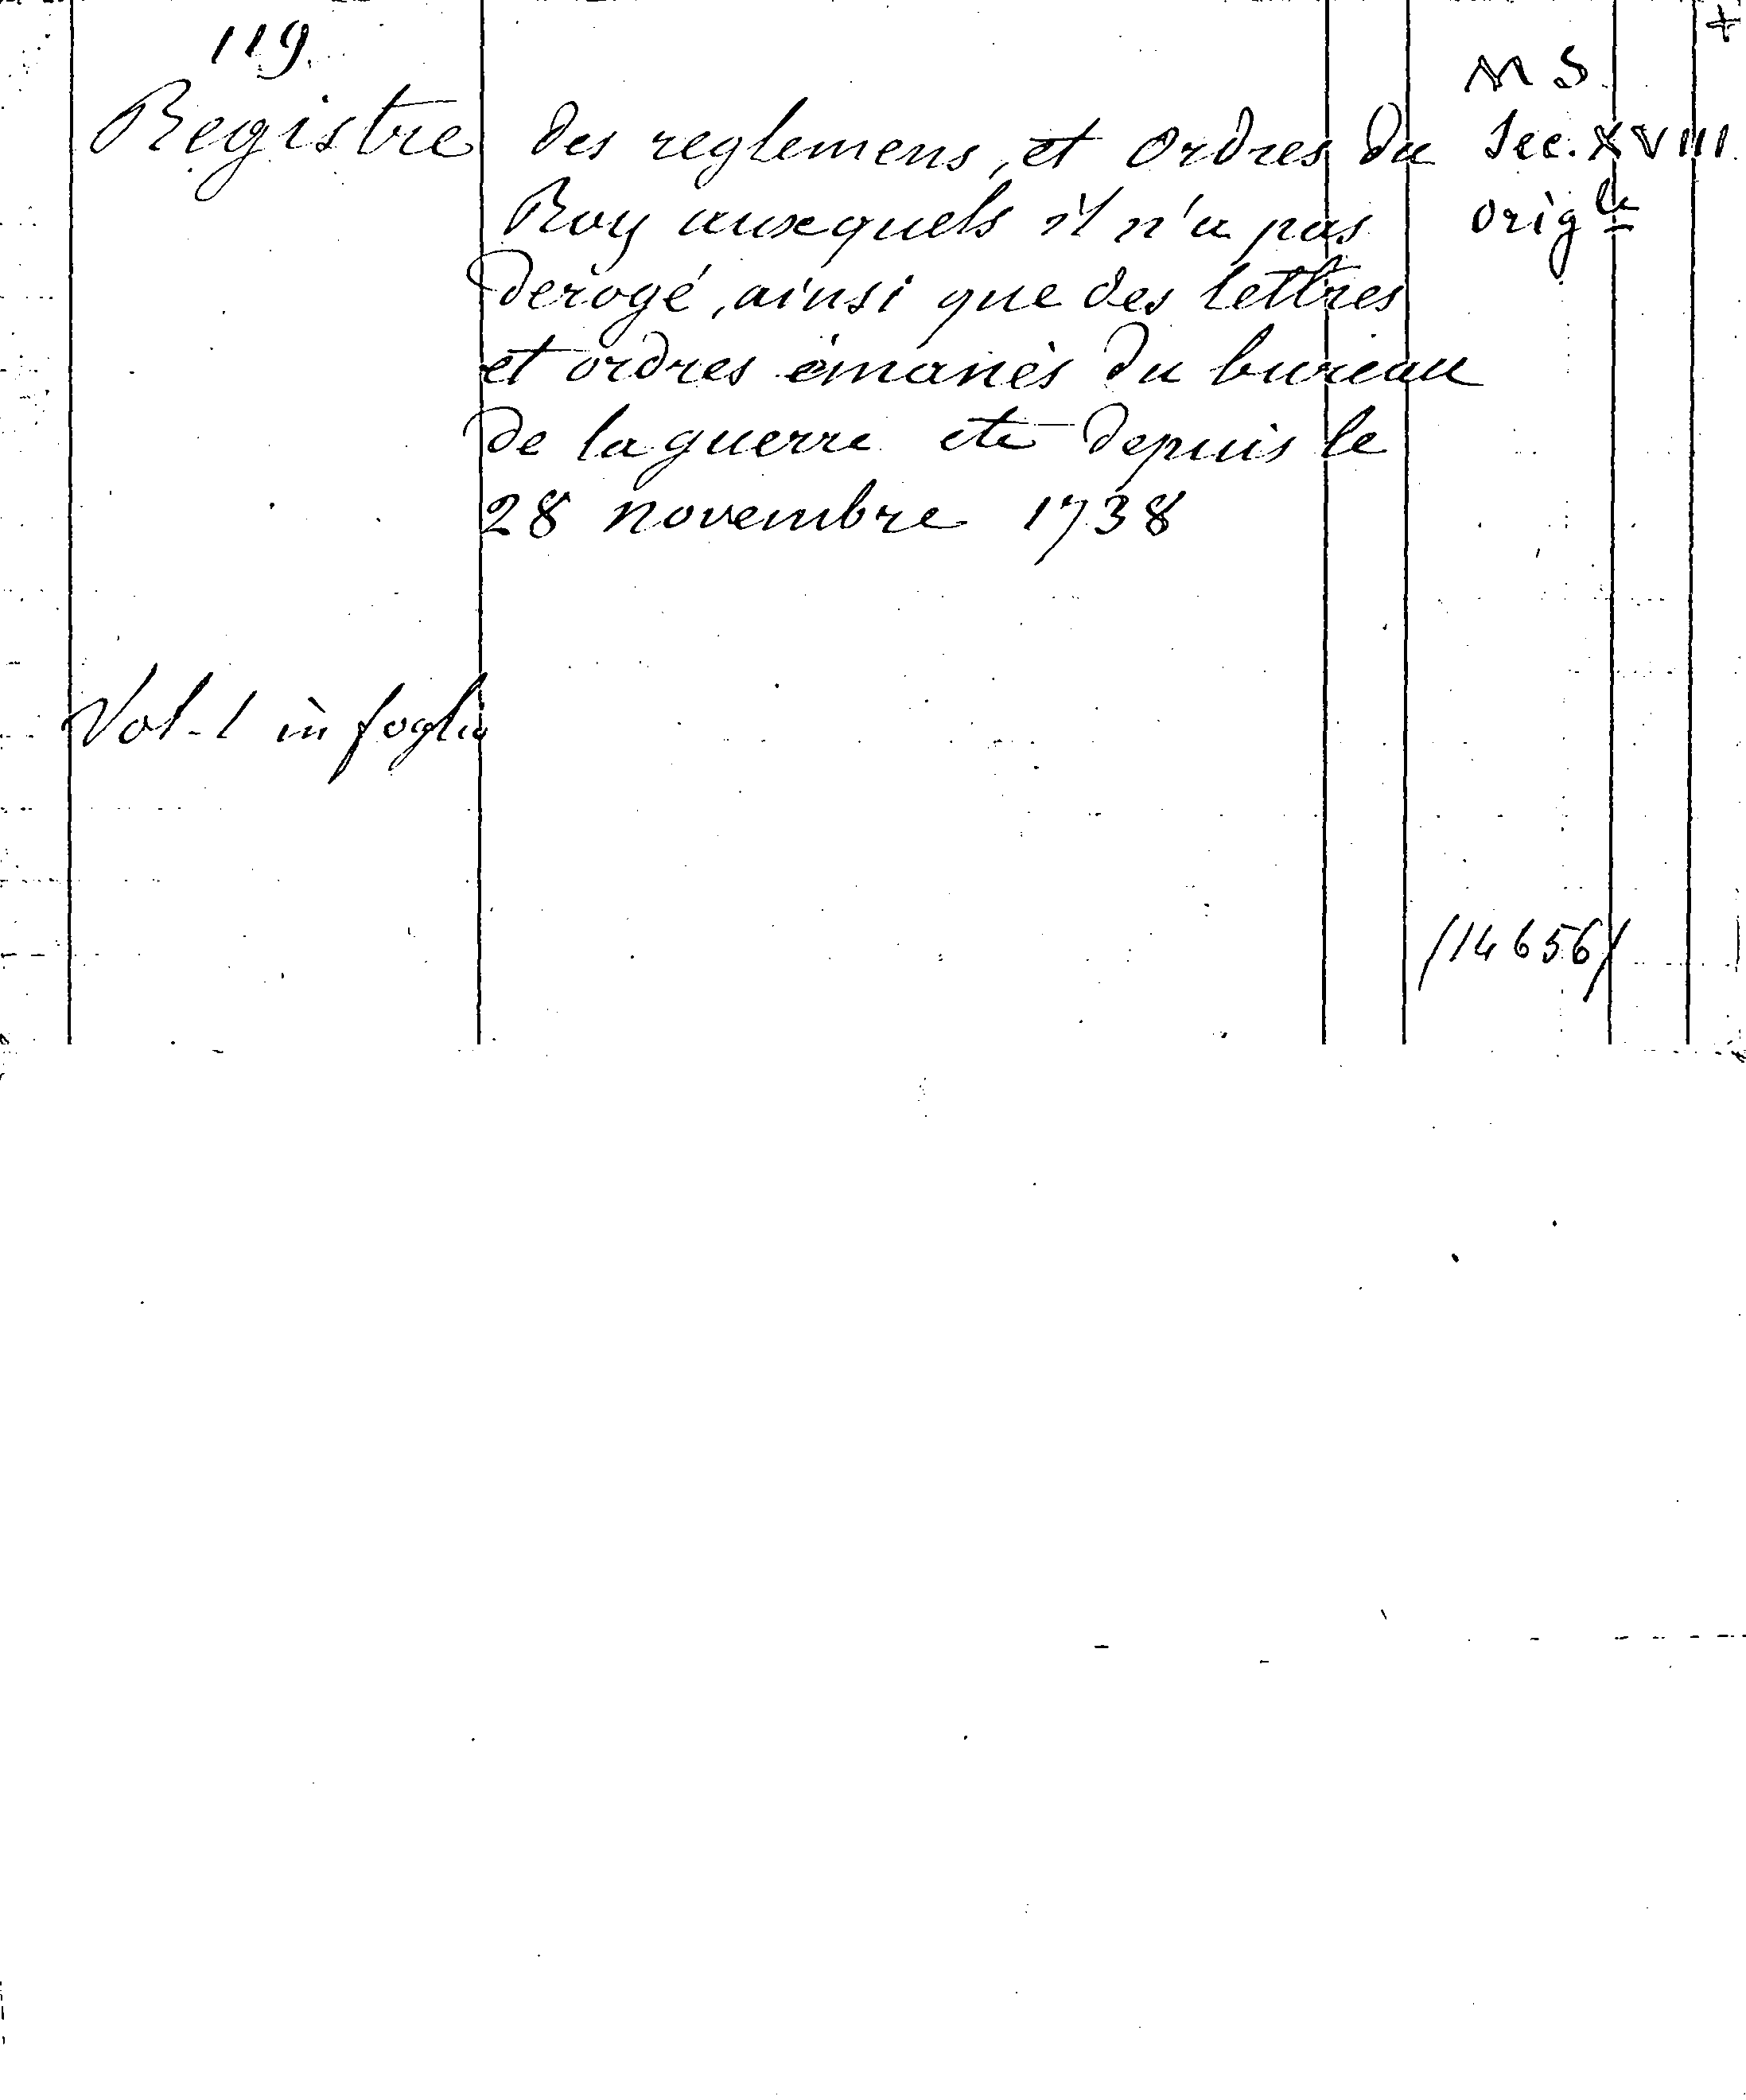 119.
+
MS.
Registre des reglemens, et ordres du Sec. XVIII
Roy auxquels il n'a pas orig le
derogé, ainsi que des lettres
et ordres émanès du bureau
de la guerre etc depuis le
28 novembre 1738
Vol. 1 in foglio
/14656/